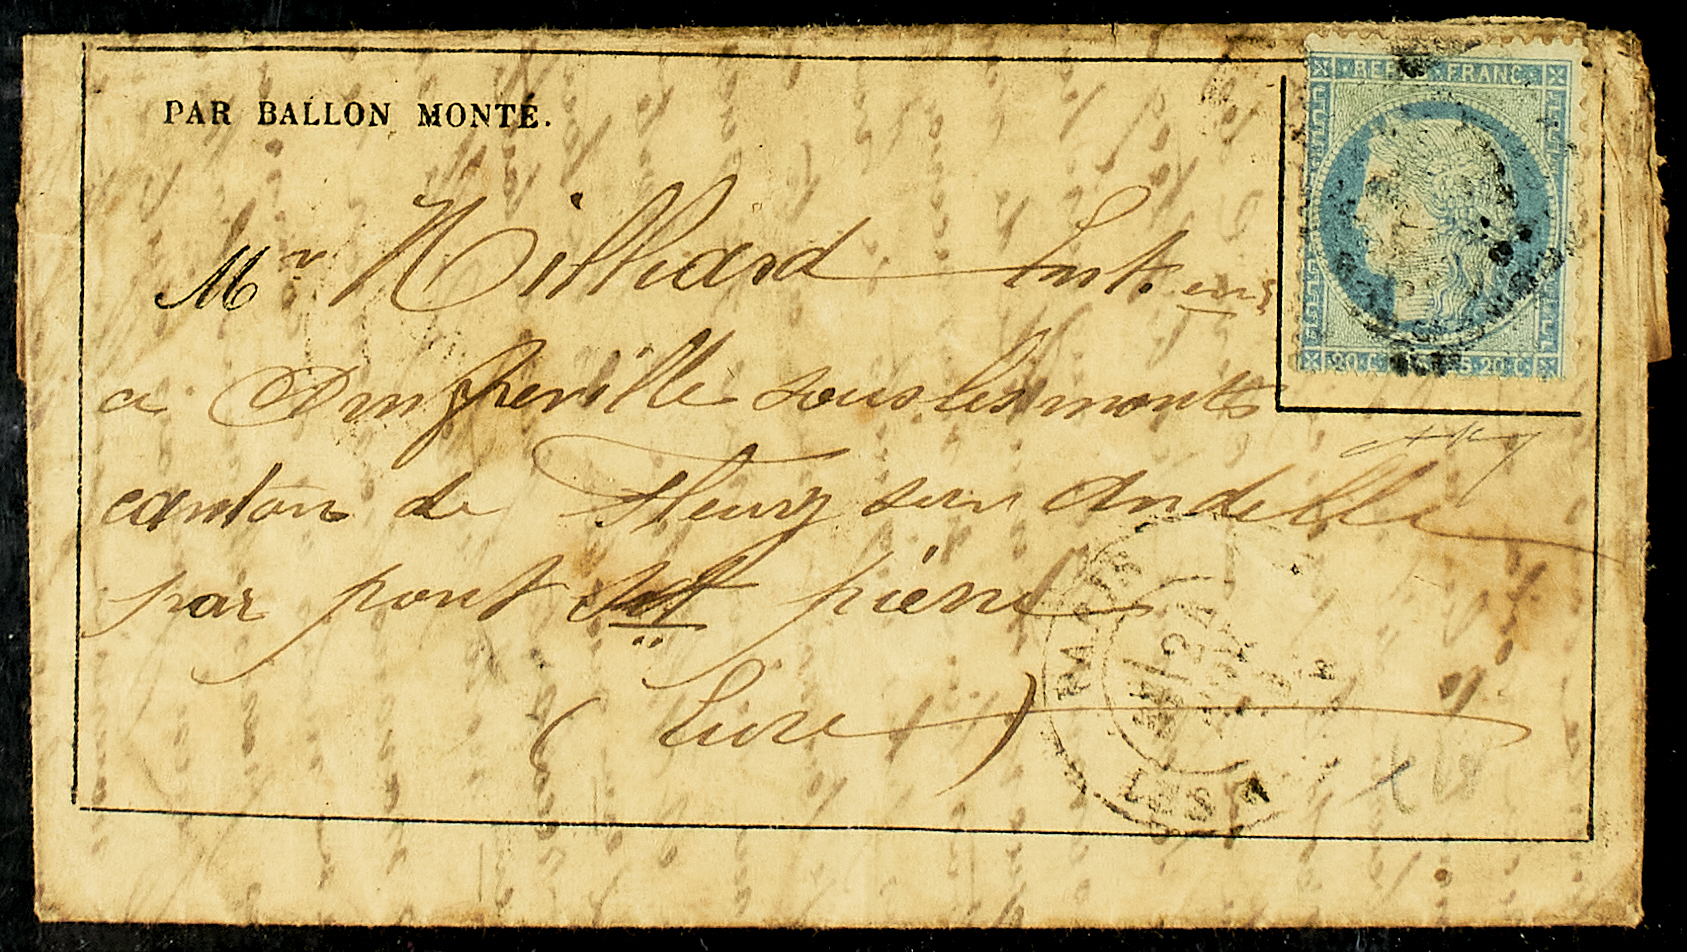 REPUB · FRANC ·
PAR BALLON MONTÉ.
Mr Hilliard Inst.
a Amfreville sous les monts
canton de Fleury sur Andelle
par pont St pierre
(Eure)
20·C 20·C
PARIS
LES